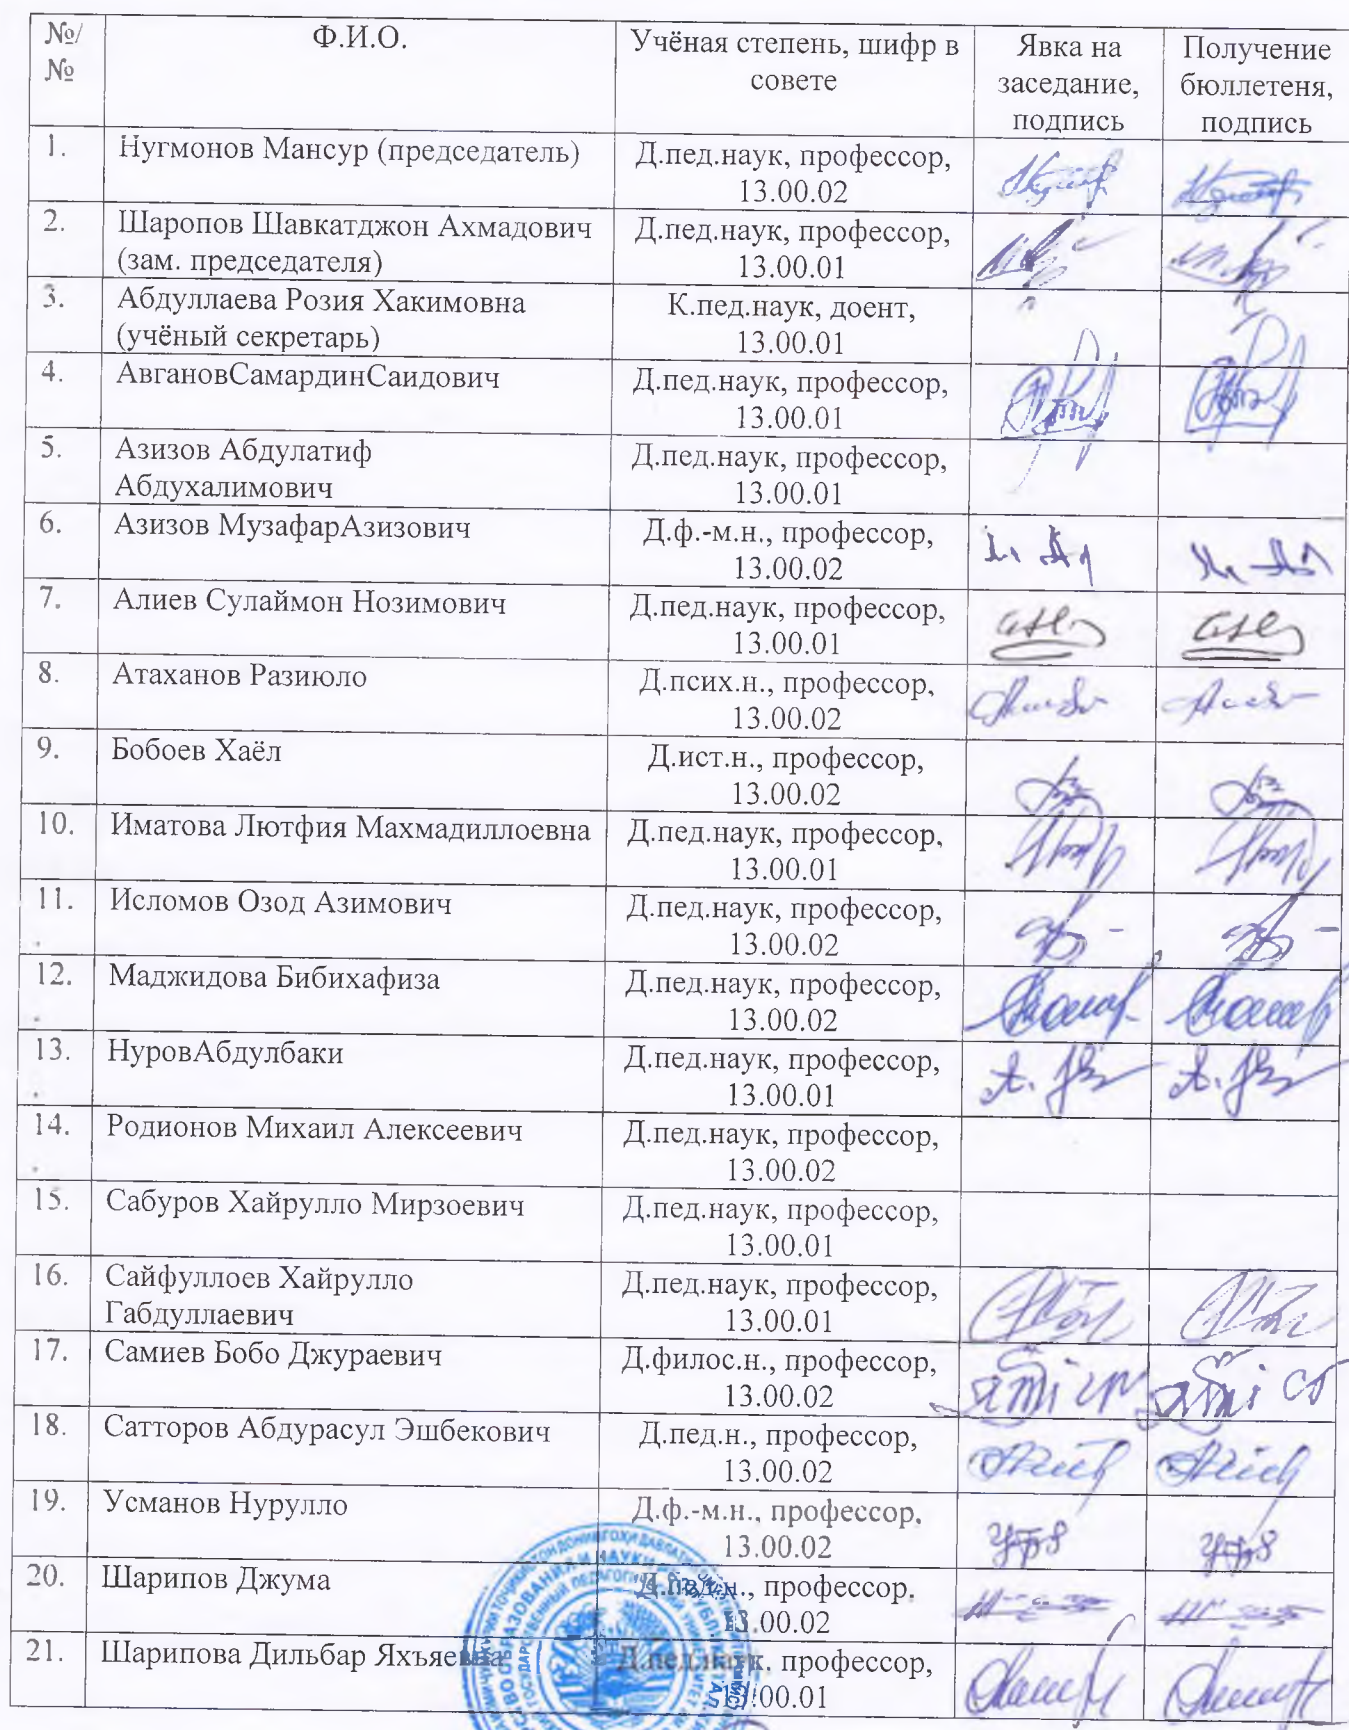 №/
№
Ф.И.О.
Учёная степень, шифр в
совете
Явка на
заседание,
подпись
Получение
бюллетеня,
подпись
1. Нугмонов Мансур (председатель) Д.пед.наук, профессор,
13.00.02
2. Шаропов Шавкатджон Ахмадович Д.пед.наук, профессор,
(зам. председателя) 13.00.01
3. Абдуллаева Розия Хакимовна К.пед.наук, доент,
(учёный секретарь) 13.00.01
4. АвгановСамардинСаидович Д.пед.наук, профессор,
13.00.01
5. Азизов Абдулатиф Д.пед.наук, профессор,
Абдухалимович 13.00.01
6. Азизов МузафарАзизович Д.ф.-м.н., профессор,
13.00.02
7. Алиев Сулаймон Нозимович Д.пед.наук, профессор,
13.00.01
8. Атаханов Разиюло Д.псих.н., профессор,
13.00.02
9. Бобоев Хаёл Д.ист.н., профессор,
13.00.02
10. Иматова Лютфия Махмадиллоевна Д.пед.наук, профессор,
13.00.01
11. Исломов Озод Азимович Д.пед.наук, профессор,
13.00.02
12. Маджидова Бибихафиза Д.пед.наук, профессор,
13.00.02
13. НуровАбдулбаки Д.пед.наук, профессор,
13.00.01
14. Родионов Михаил Алексеевич Д.пед.наук, профессор,
13.00.02
15. Сабуров Хайрулло Мирзоевич Д.пед.наук, профессор,
13.00.01
16. Сайфуллоев Хайрулло Д.пед.наук, профессор,
Габдуллаевич 13.00.01
17. Самиев Бобо Джураевич Д.филос.н., профессор,
13.00.02
18. Сатторов Абдурасул Эшбекович Д.пед.н., профессор,
13.00.02
19. Усманов Нурулло Д.ф.-м.н., профессор,
13.00.02
20. Шарипов Джума Д.пед.н., профессор,
13.00.02
21. Шарипова Дильбар Яхъяевна Д.пед.наук, профессор,
13.00.01